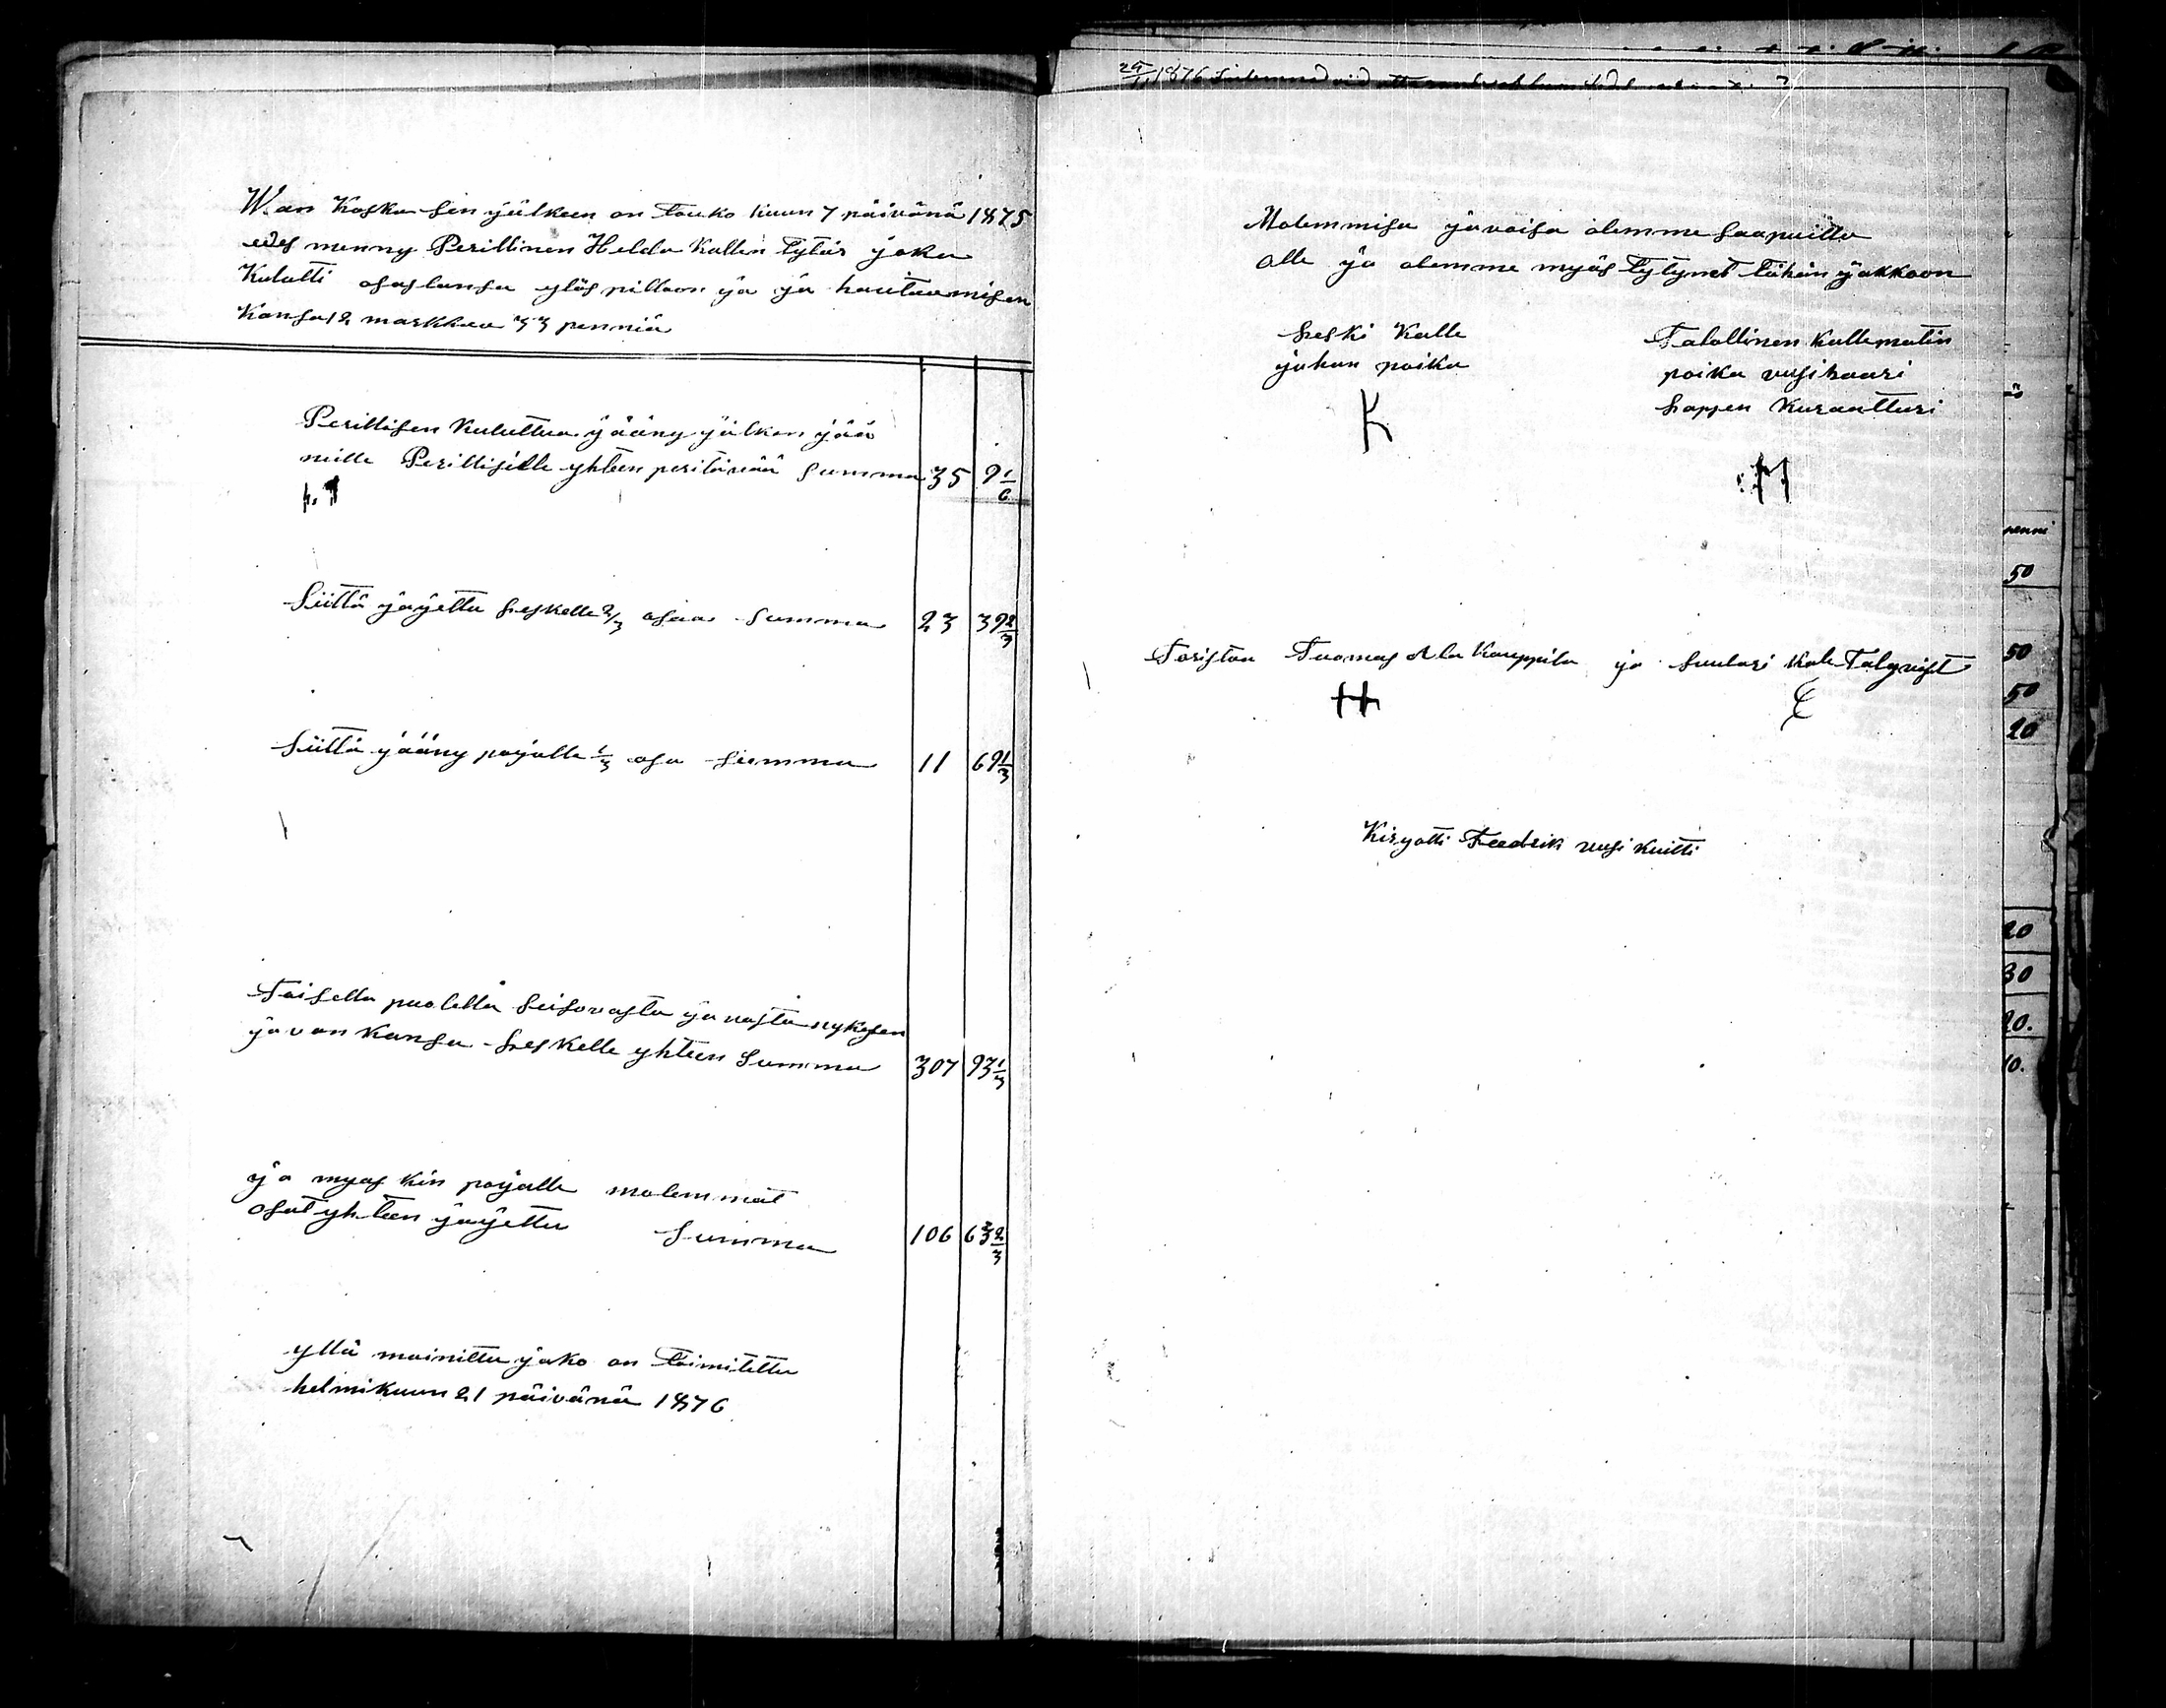 Wan Koska sen jälkeen on Touko kuun 7 päivänä 1875
edes menny Perillinen Helda Kallen Tytär joka
Kulutti osastansa ylös pitloon ja ja hautaamisen
Kansa 12 markkaa 33 penniä
Perillisen Kuluttua jääny jälken jää
mille Perillisille yhteen peritävää Summa 35 9 1/6
Siittä jajettu Leskelle 2/3 osaa Summa 23 39 2/3
Siittä jääny pojalle 1/3 osa Summa 11 69 1/3
Toisella puolella Seisovasta javosta nykysen
javon Kansa Leskelle yhteen Summa 307 93 1/3
ja myös kin pojalle molemmat
osat yhteen jajettu Summa 106 63 2/3
yllä mainittu jako on Toimitettu
helmikuun 21 päivänä 1876
1876
Molemmisa javoisa olemme Saapuilla
olle ja olemme myös Tytynet Tähän jakkoon
Leski Kalle
juhan poika
K
Talollinen Kalle matin
poika uusihaari
Lapsen Kuraatturi
Toristaa Tuomas Ala Kauppila ja Suulari Kale Talqvist
Kirjotti Feedrik uusi Kuitti
penni
50
50
50
20
20
30
20.
10.